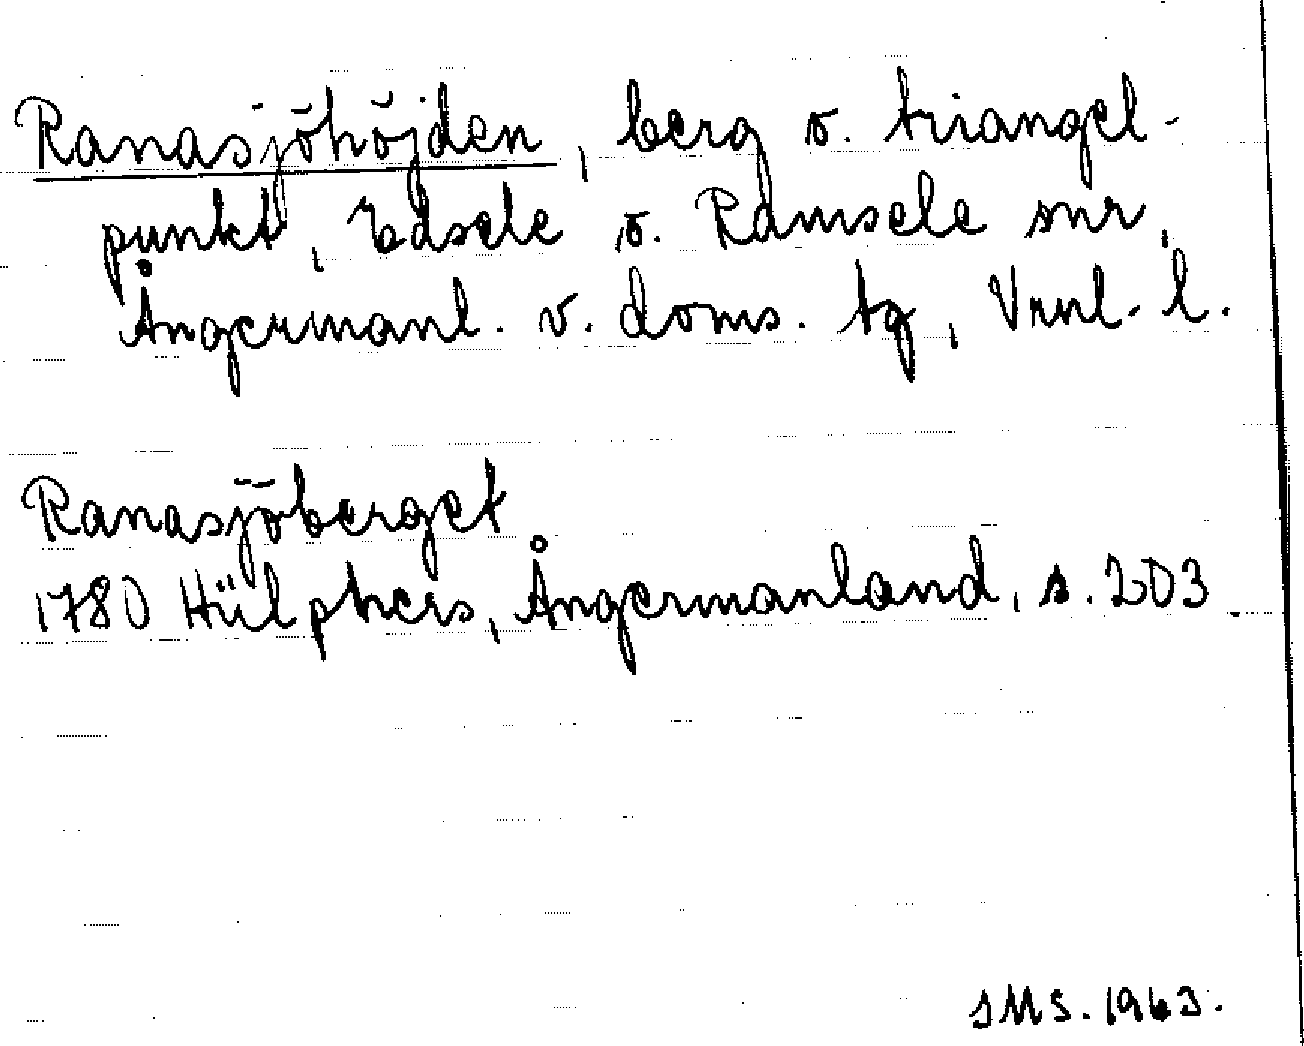 Ranasjöhöjden, berg o. triangel-
punkt, Edsele o. Ramsele snr,
Ångermanl. v. doms. tg, Vrnl. l.
Ranasjöberget
1780 Hülphers, Ångermanland, s. 203
SMS. 1963.